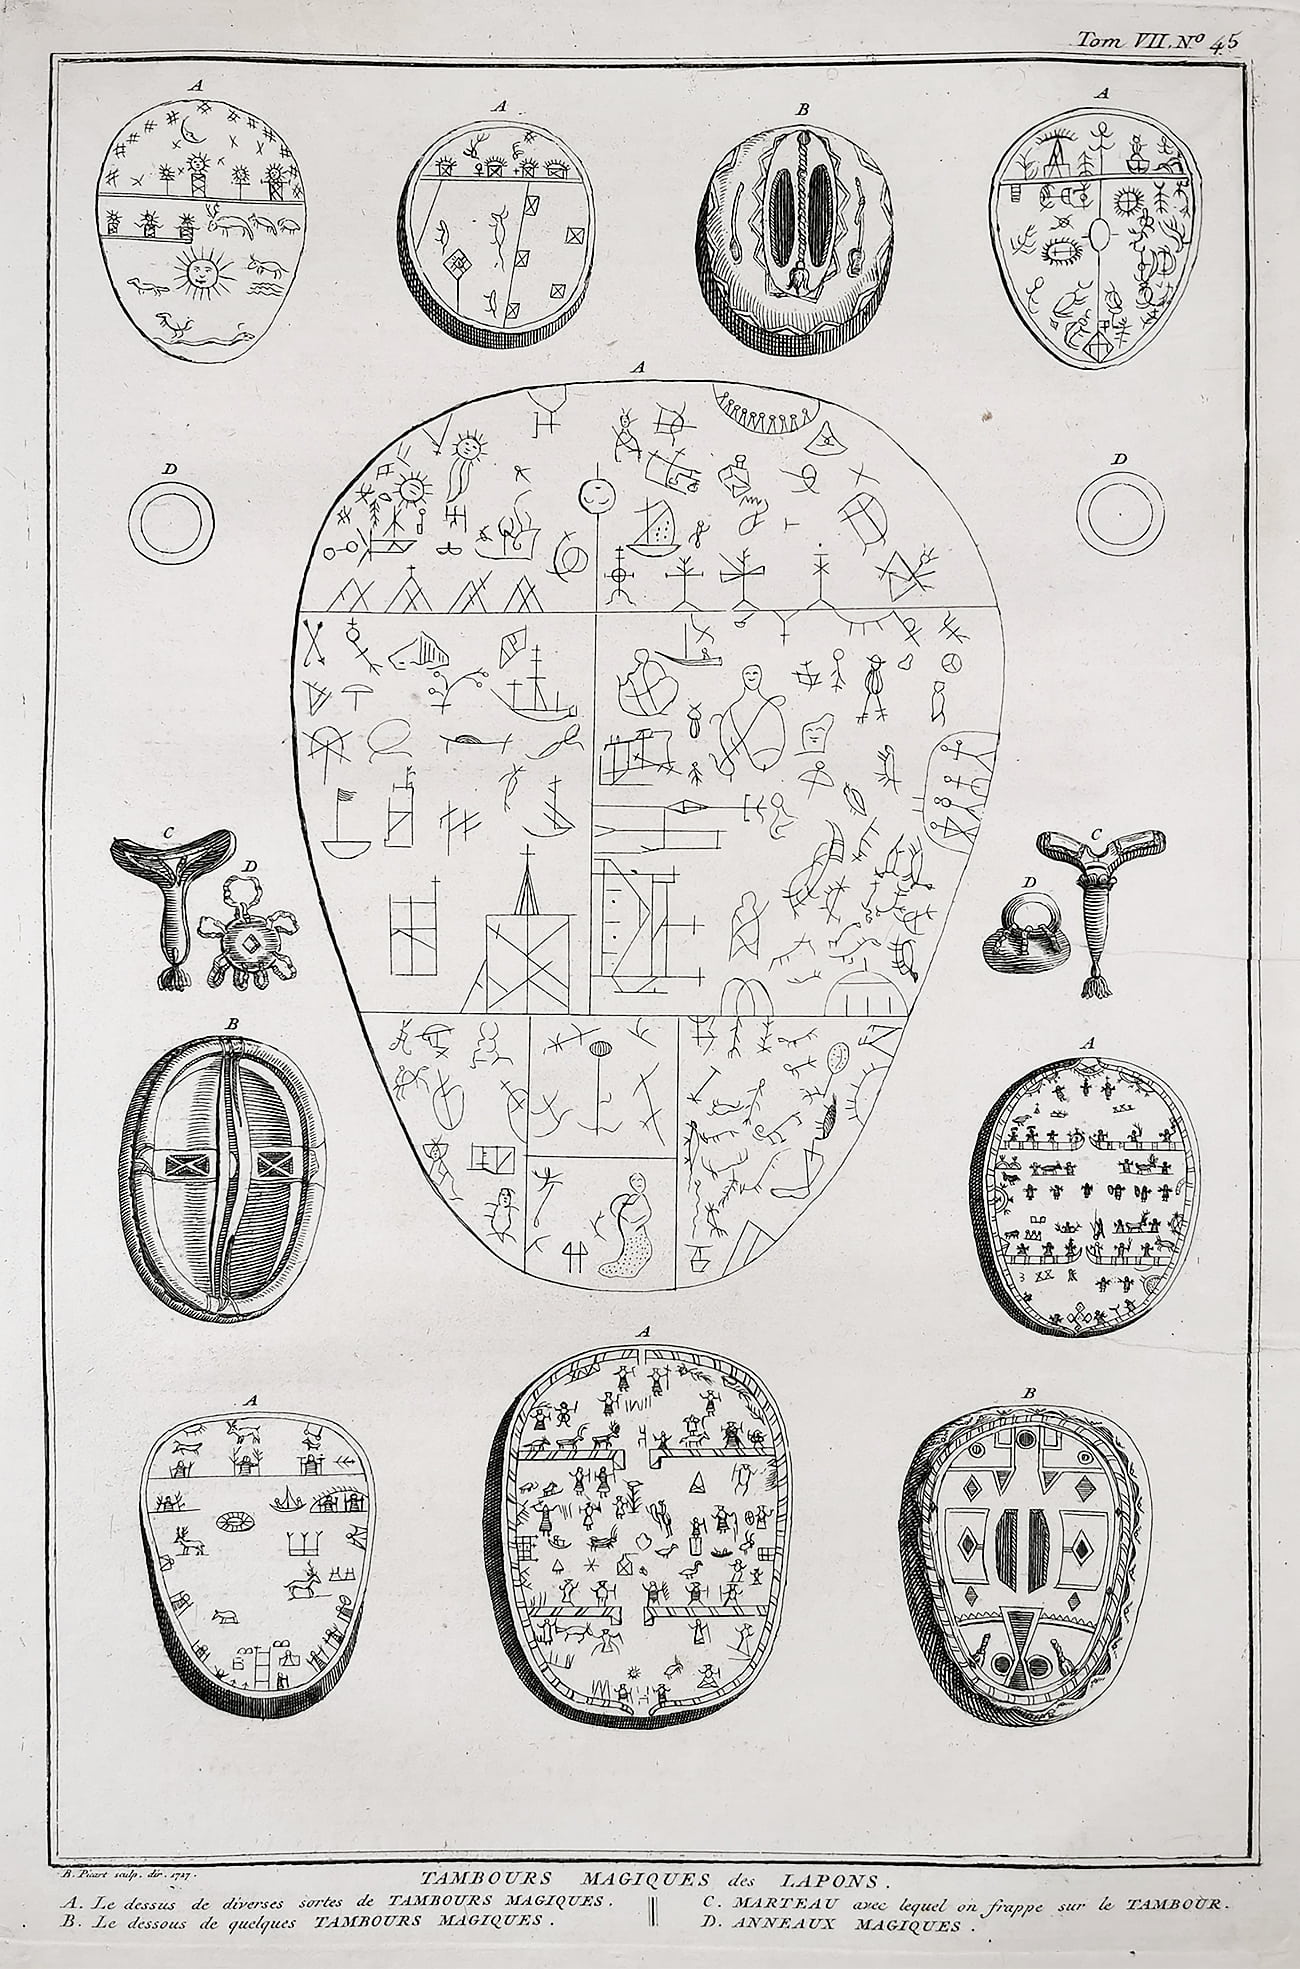 Tom VII. Nº 45
A
A
B
A
A
D
D
C
D
C
D
B
A
A
A
B
B. Picart sculp. dir. 1727.
TAMBOURS MAGIQUES des LAPONS.
A. Le dessus de diverses sortes de TAMBOURS MAGIQUES.
B. Le dessous de quelques TAMBOURS MAGIQUES.
C. MARTEAU avec lequel on frappe sur le TAMBOUR.
D. ANNEAUX MAGIQUES.